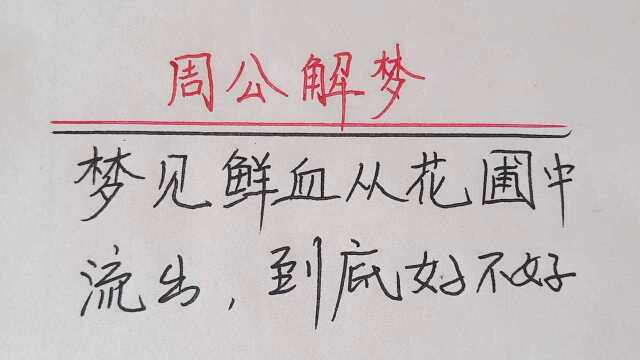 周公解梦
梦见鲜血从花圃中
流出，到底好不好